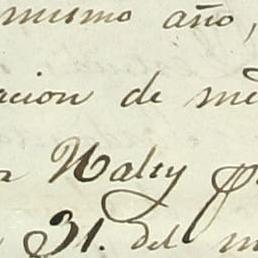 mismo año,
acion de me
Halsy
31. del m